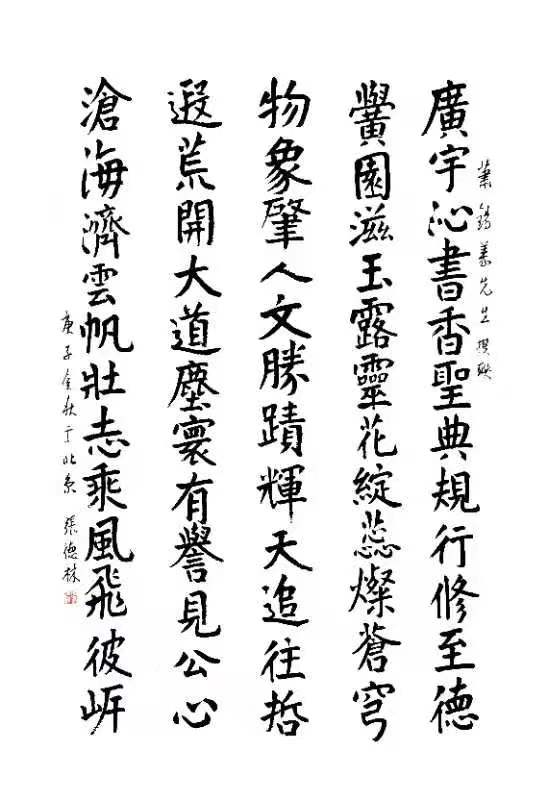 蕭錫義先生撰聯
廣宇沁書香聖典規行修至德
黌園滋玉露靈花綻蕊燦蒼穹
物象肇人文勝蹟輝天追往哲
遐荒開大道塵寰有譽見公心
滄海濟雲帆壯志乘風飛彼岸
庚子金秋于北京 張德林